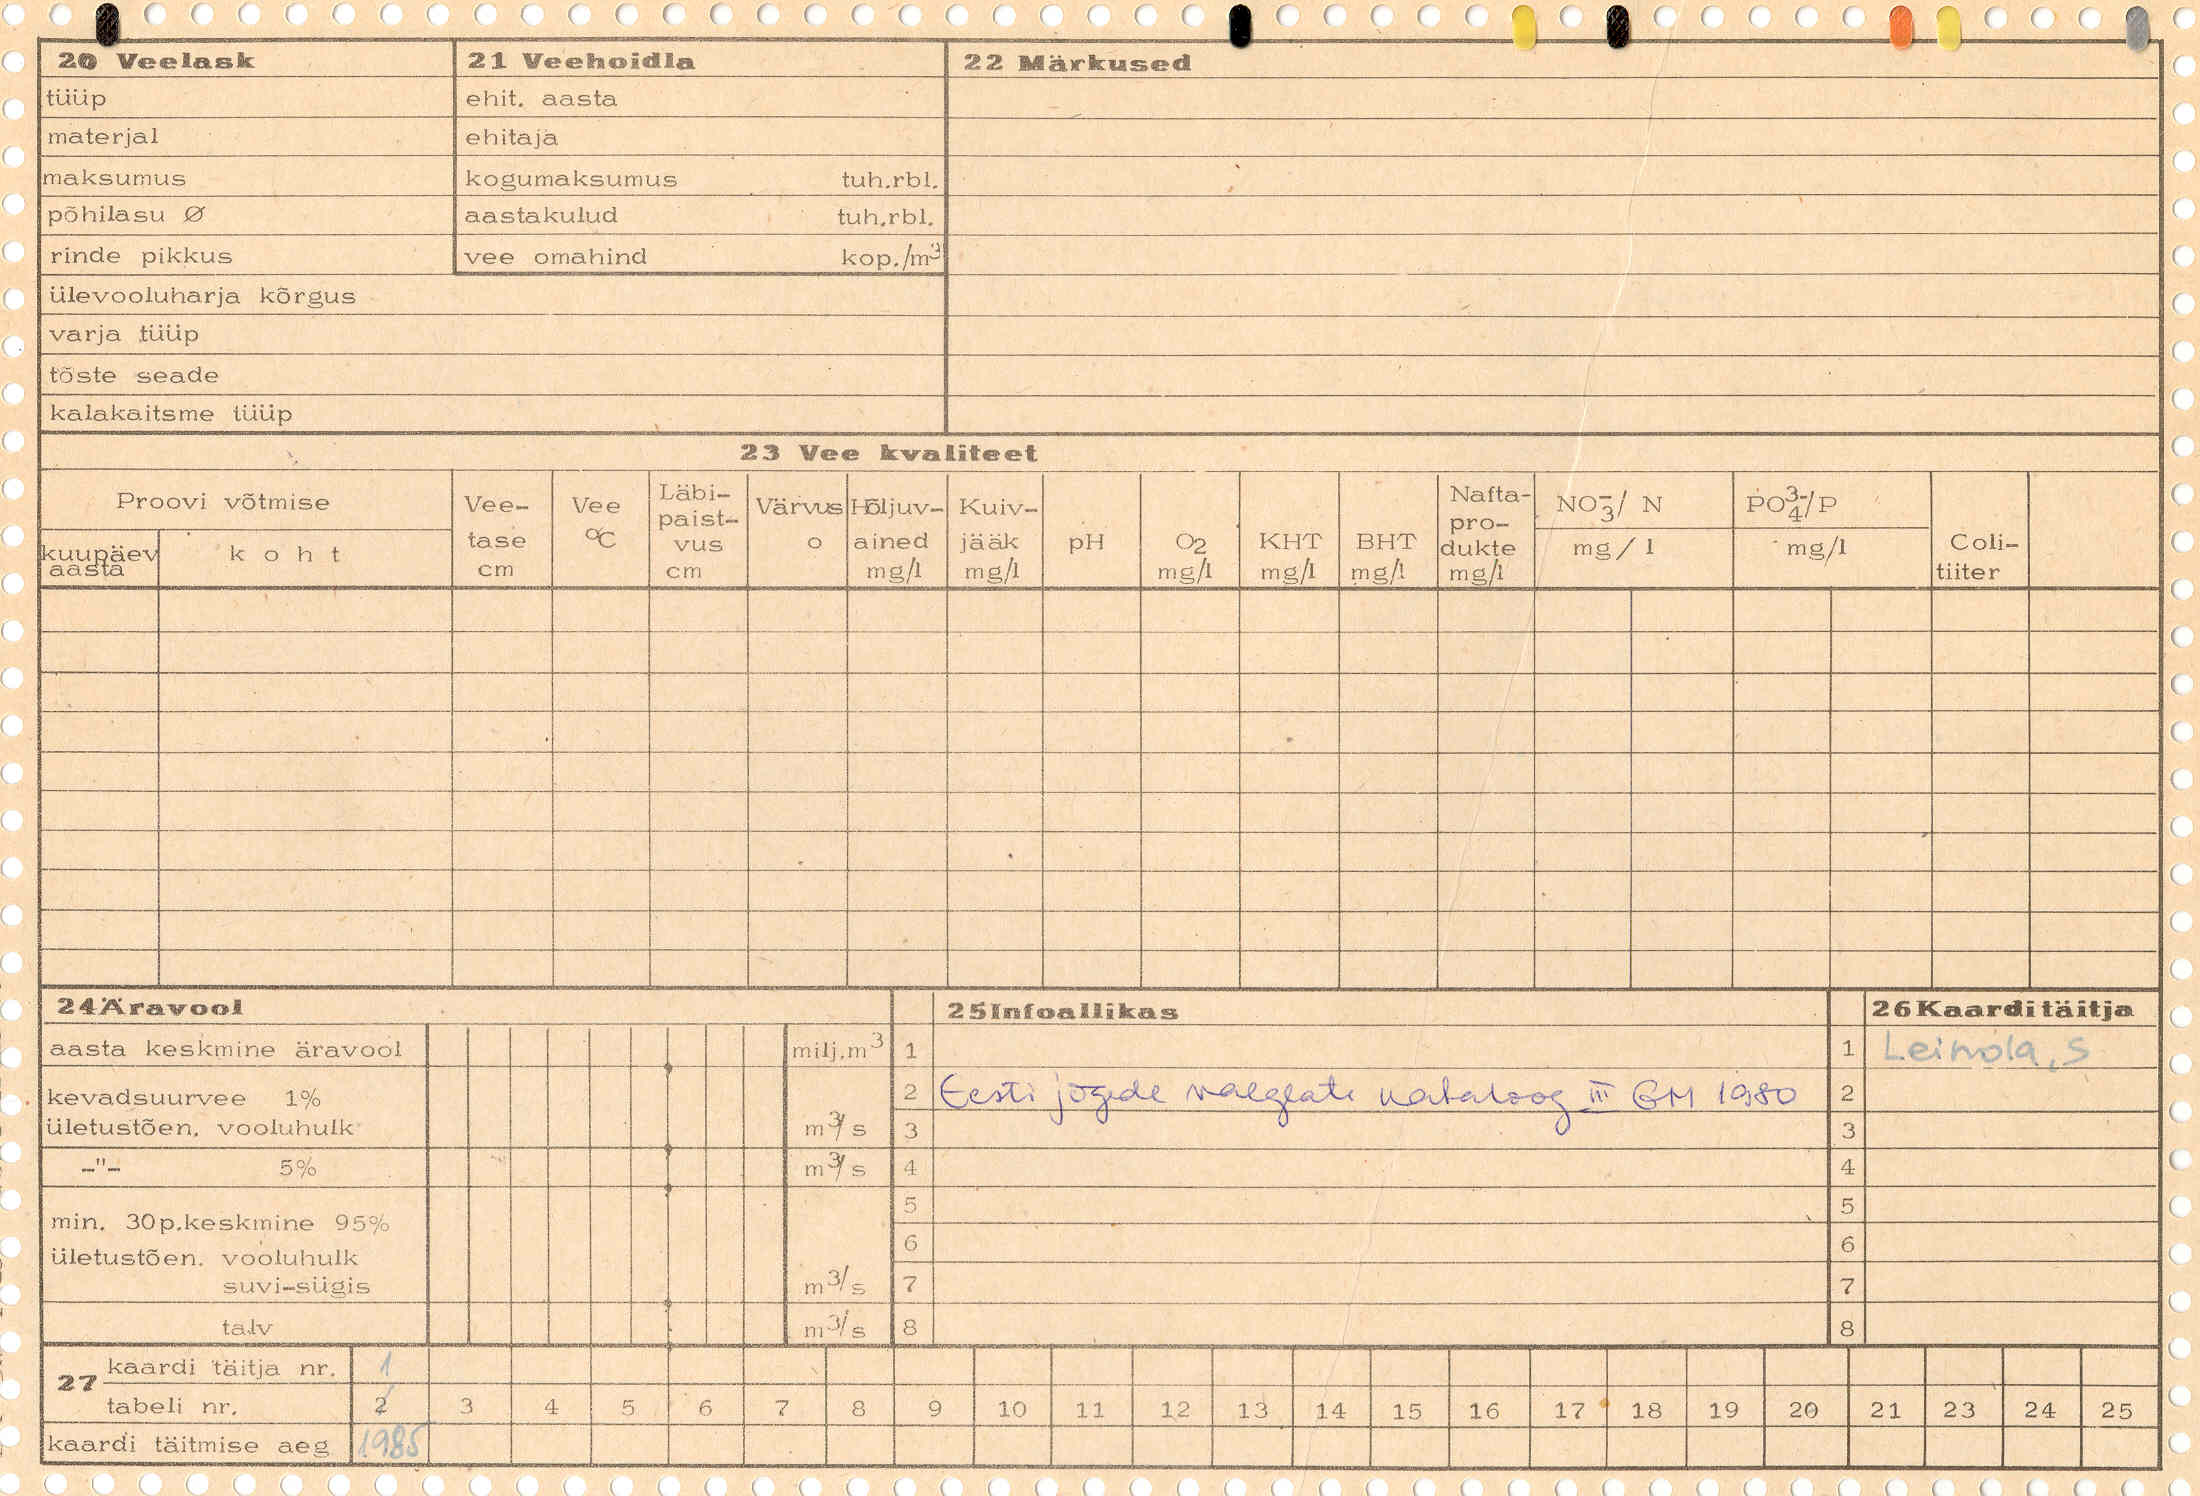 20 Veelask
tüüp
materjal
maksumus
põhilasu Ø
rinde pikkus
ülevooluharja kõrgus
varja tüüp
tõste seade
kalakaitsme tüüp
21 Veehoidla
ehit. aasta
ehitaja
kogumaksumus tuh.rbl.
aastakulud tuh.rbl.
vee omahind kop./m³
22 Märkused
23 Vee kvaliteet
Proovi võtmise
kuupäev
aasta
koht
Vee-
tase
cm
Vee
°C
Läbi-
paist-
vus
cm
Värvus
o
Hõljuv-
ained
mg/l
Kuiv-
jääk
mg/l
pH
O2
mg/l
KHT
mg/l
BHT
mg/l
Nafta-
pro-
dukte
mg/l
NO₃⁻/ N
mg/l
PO₄³⁻/P
mg/l
Coli-
tiiter
24 Äravool
aasta keskmine äravool milj.m³
kevadsuurvee 1%
ületustõen. vooluhulk m³/s
-"- 5% m³/s
min. 30p.keskmine 95%
ületustõen. vooluhulk
suvi-sügis m³/s
talv m³/s
25 Infoallikas
1
2 Eesti jõgede valglate kataloog III GM 1980
3
4
5
6
7
8
26 Kaarditäitja
1 Leivola, S
2
3
4
5
6
7
8
27
kaardi täitja nr. 1
tabeli nr. 2 3 4 5 6 7 8 9 10 11 12 13 14 15 16 17 18 19 20 21 23 24 25
kaardi täitmise aeg 1985